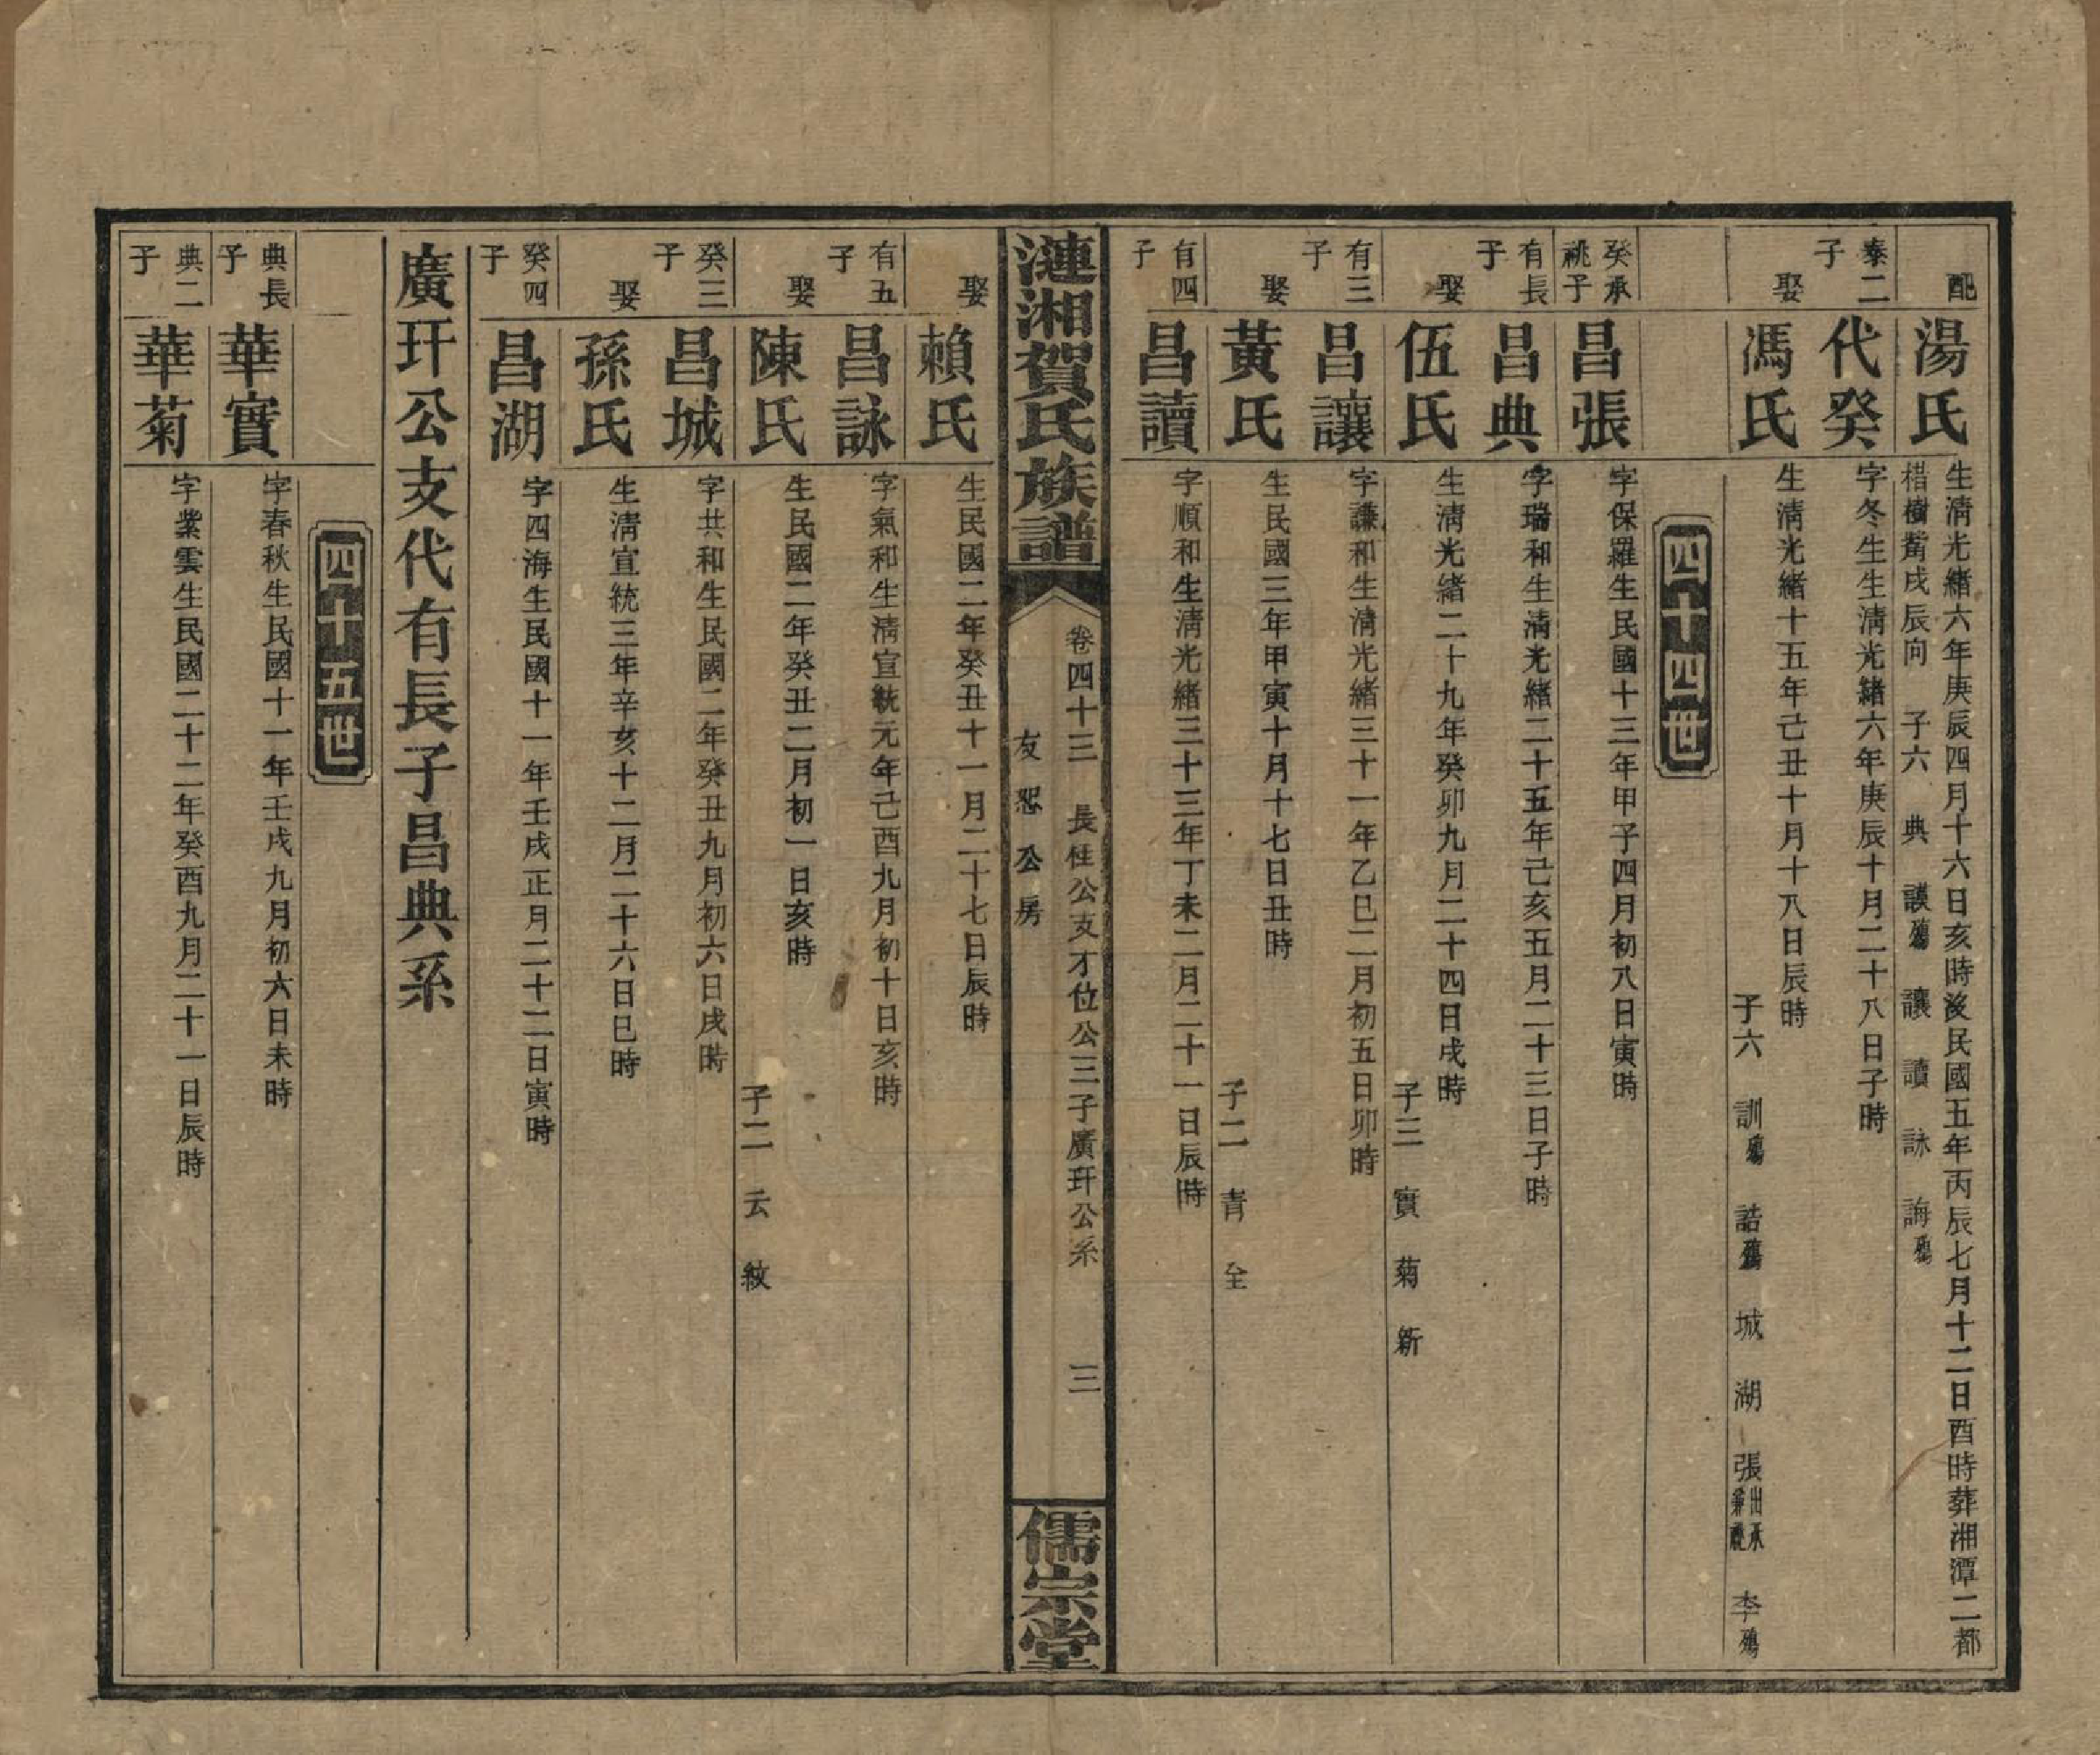 配
湯氏
生清光緒六年庚辰四月十六日亥時沒民國五年丙辰七月十二日酉時葬湘潭二都
樹觜戌辰向 子六 典 謨殤 讓 讀 詠 誨殤
泰二子
代癸
字冬生生清光緒六年庚辰十月二十八日子時
娶
馮氏
生清光緒十五年己丑十月十八日辰時
子六 訓殤 誥殤 城 湖 張出承兼祧 李殤
四十四世
癸承祧子
昌張
字保羅生民國十三年甲子四月初八日寅時
有長子
昌典
字瑞和生清光緒二十五年己亥五月二十三日子時
娶
伍氏
生清光緒二十九年癸卯九月二十四日戌時
子三 實 菊 新
有三子
昌讓
字謙和生清光緒三十一年乙巳二月初五日卯時
娶
黃氏
生民國三年甲寅十月十七日丑時
子二 青 全
有四子
昌讀
字順和生清光緒三十三年丁未二月二十一日辰時
漣湘賀氏族譜
卷四十三 長任公支才位公三子廣玕公系 三
友恕公房
儒宗堂
娶
賴氏
生民國二年癸丑十一月二十七日辰時
有五子
昌詠
字氣和生清宣統元年己酉九月初十日亥時
娶
陳氏
生民國二年癸丑二月初一日亥時
子二 云 紋
癸三子
昌城
字共和生民國二年癸丑九月初六日戌時
娶
孫氏
生清宣統三年辛亥十二月二十六日巳時
癸四子
昌湖
字四海生民國十一年壬戌正月二十二日寅時
廣玕公支代有長子昌典系
四十五世
典長子
華實
字春秋生民國十一年壬戌九月初六日未時
典二子
華菊
字紫雲生民國二十二年癸酉九月二十一日辰時